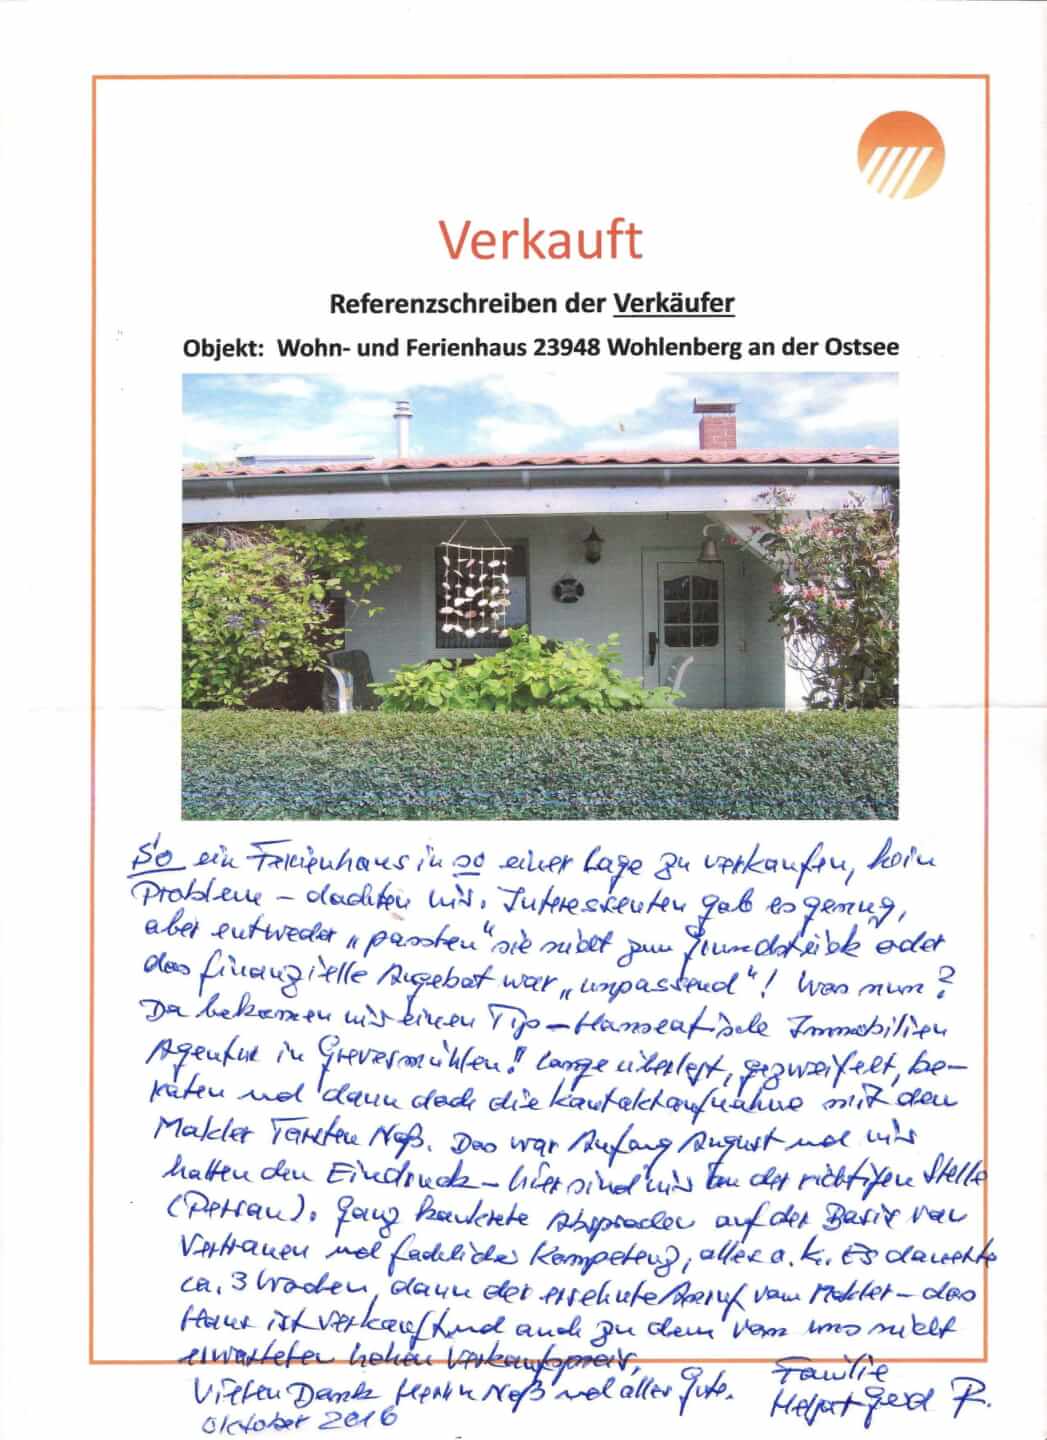 Verkauft
Referenzschreiben der Verkäufer
Objekt: Wohn- und Ferienhaus 23948 Wohlenberg an der Ostsee
So ein Ferienhaus in so einer Lage zu verkaufen, kein
Problem – dachten wir. Interessenten gab es genug,
aber entweder „passten“ sie nicht zum Grundstück oder
das finanzielle Angebot war „unpassend“! Was nun?
Da bekamen wir einen Tip – Hanseatische Immobilien
Agentur in Grevesmühlen! Lange überlegt, gezweifelt, be-
raten und dann doch die Kontaktaufnahme mit dem
Makler Torsten Naß. Das war Anfang August und wir
hatten den Eindruck – hier sind wir an der richtigen Stelle
(Person). Ganz konkrete Absprachen auf der Basis von
Vertrauen und fachlicher Kompetenz, alles o.k. Es dauerte
ca. 3 Wochen, dann der ersehnte Anruf vom Makler – das
Haus ist verkauft und auch zu dem von uns nicht
erwarteten hohen Verkaufspreis.
Vielen Dank Herrn Naß und alles Gute.
Familie
Gerd R.
Oktober 2016